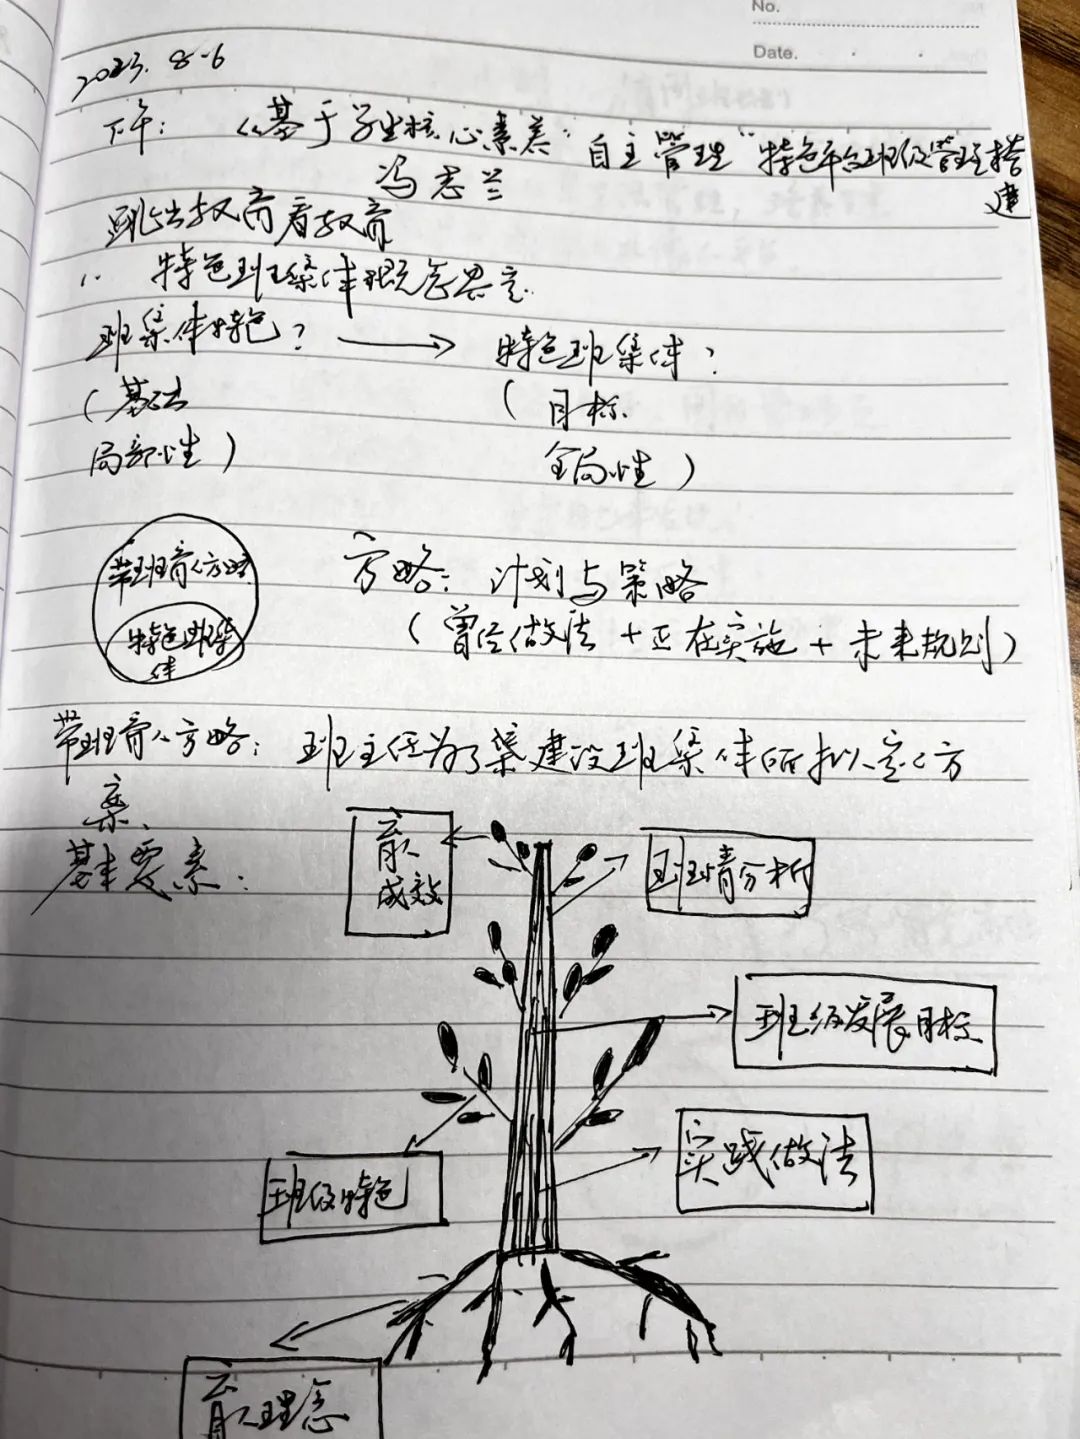 No.
Date.
2023. 8-6
下午：《基于学生核心素养"自主管理"特色平台班级管理搭
建
冯志兰
跳出教育看教育
1. 特色班集体概念界定.
班集体特色？ → 特色班集体？
（基础 （目标
局部性） 全局性）
带班育人方略
特色班集
体
方略：计划与策略
（曾经做法 + 正在实施 + 未来规划）
带班育人方略：班主任为了 建设班集体所拟定的方
案、
基本要素：
育人
成效
班情分析
班级发展目标
实践做法
班级特色
育人理念